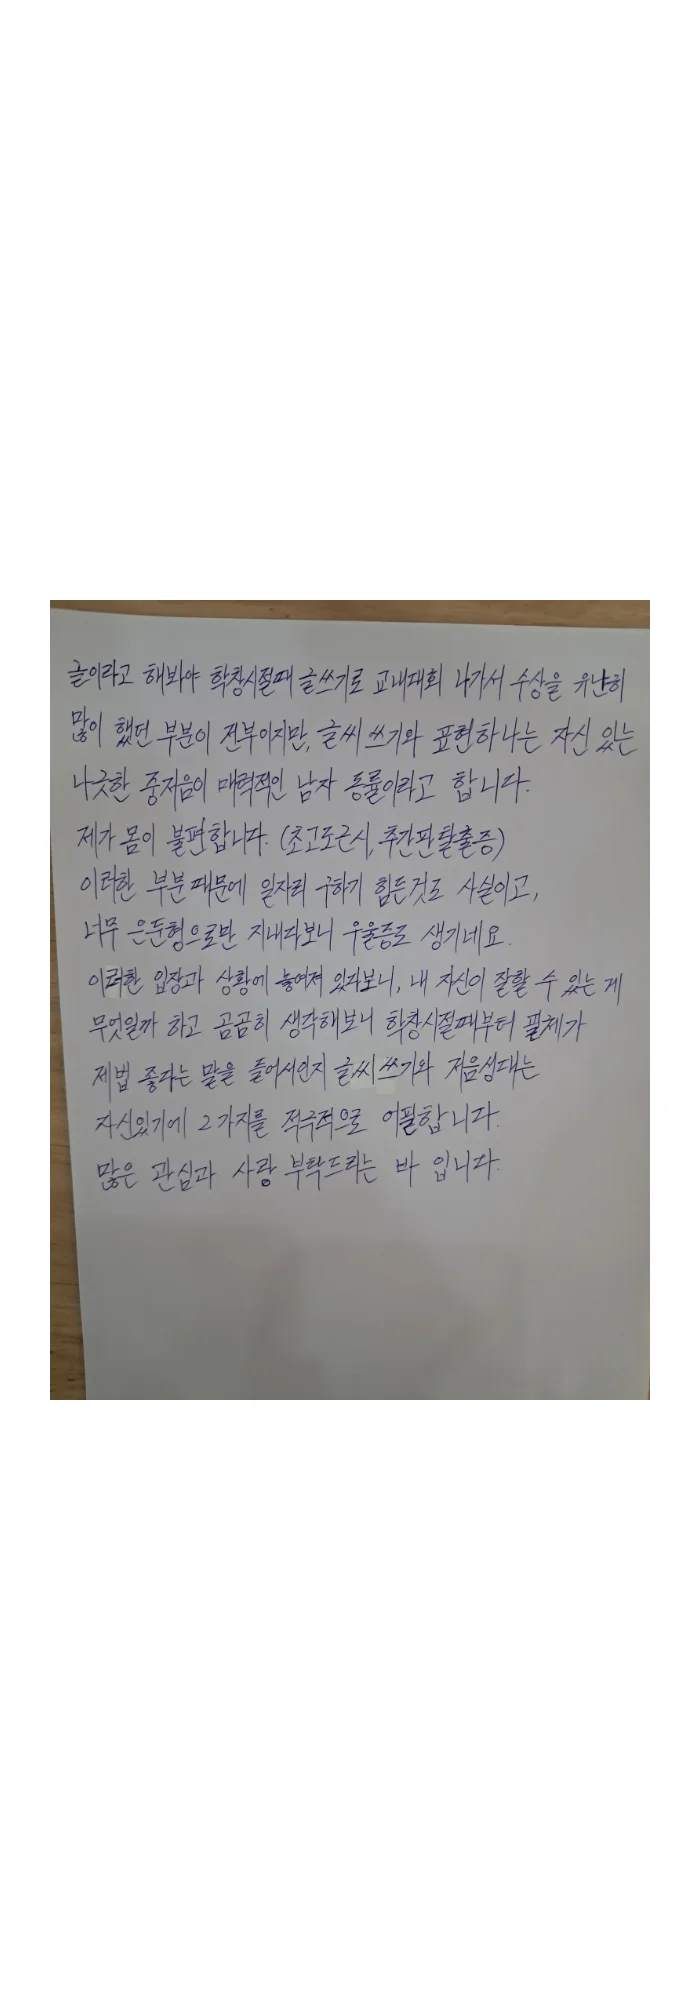 글이라고 해봐야 학창시절때 글쓰기로 교내대회 나가서 수상을 유난히
많이 했던 부분이 전부이지만, 글씨 쓰기와 표현하나는 자신 있는
나긋한 중저음이 매력적인 남자 동률이라고 합니다.
제가 몸이 불편합니다. (초고도근시, 추간판탈출증)
이러한 부분때문에 일자리 구하기 힘든것도 사실이고,
너무 은둔형으로만 지내다보니 우울증도 생기네요.
이러한 입장과 상황에 놓여져 있다보니, 내 자신이 잘할 수 있는 게
무엇일까 하고 곰곰히 생각해보니 학창시절때부터 필체가
제법 좋다는 말을 들어서인지 글씨 쓰기와 저음성대는
자신있기에 2가지를 적극적으로 어필합니다.
많은 관심과 사랑 부탁드리는 바 입니다.